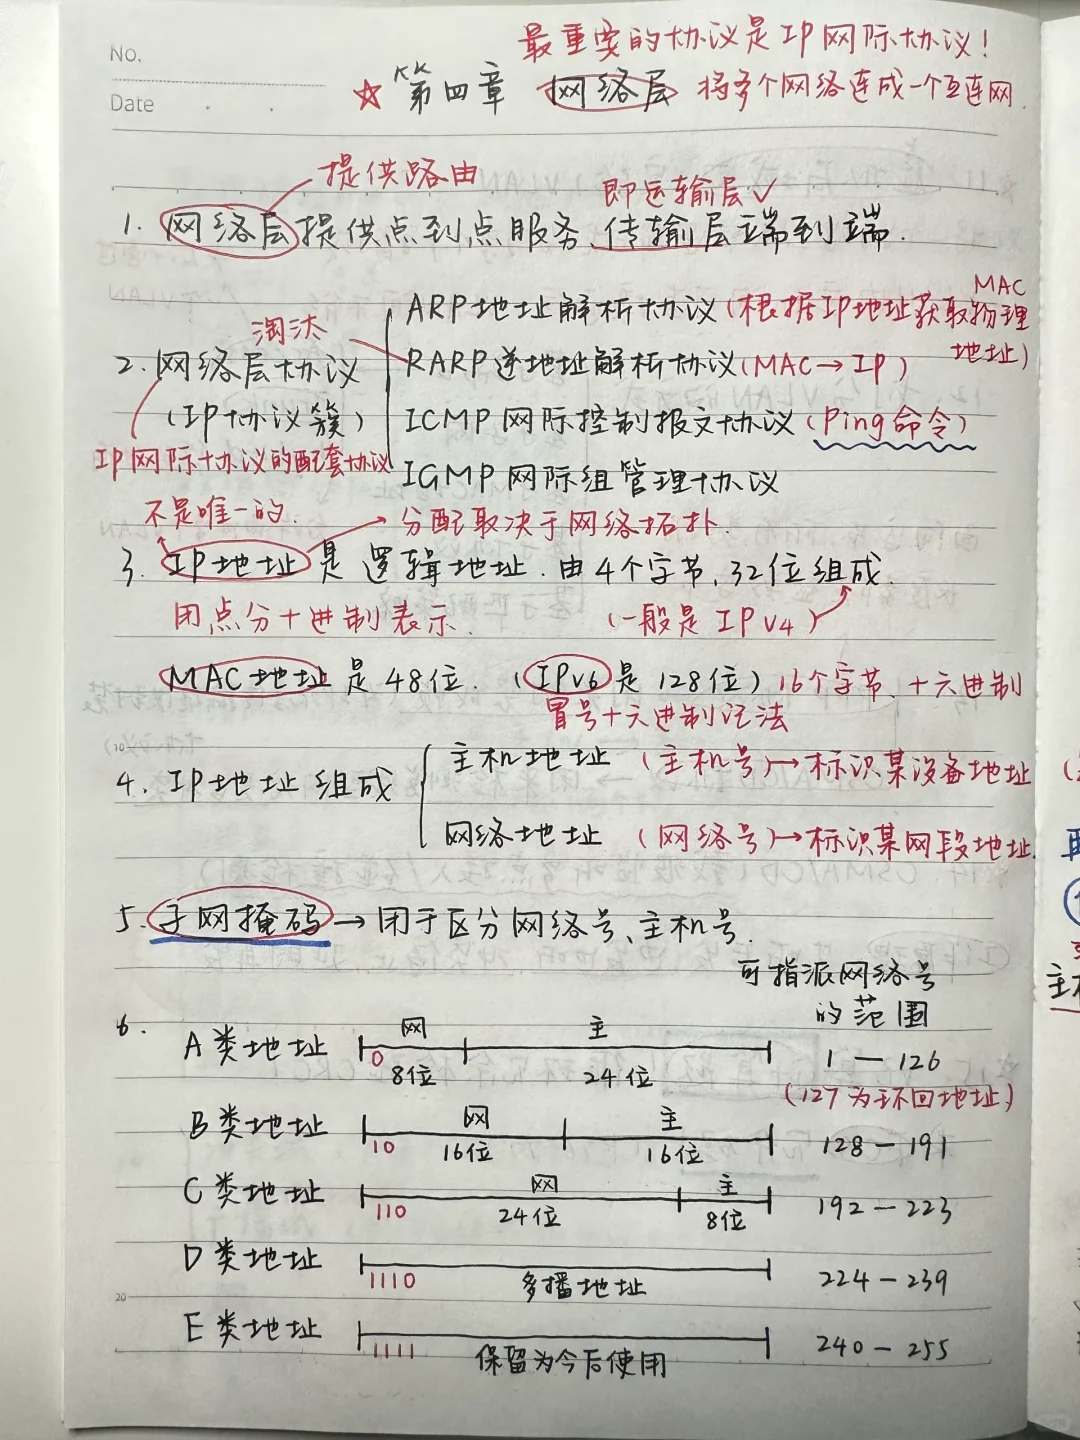 No.
Date
最重要的协议是IP网际协议!
☆ 第四章 网络层 将多个网络连成一个互连网.
提供路由
即运输层✓
1. 网络层提供点到点服务、传输层端到端.
淘汰
2. 网络层协议
(IP协议簇)
IP网际协议的配套协议
ARP地址解析协议(根据IP地址获取物理
MAC
地址)
RARP逆地址解析协议(MAC→IP)
ICMP网际控制报文协议(Ping命令)
IGMP网际组管理协议
不是唯一的.
分配取决于网络拓扑.
3. IP地址 是逻辑地址.由4个字节,32位组成.
用点分十进制表示.
(一般是IPv4)
MAC地址 是48位. (IPv6是128位) 16个字节.十六进制
冒号十六进制记法
10
4. IP地址组成
主机地址 (主机号)→标识某设备地址
网络地址 (网络号)→标识某网段地址.
5. 子网掩码→用于区分网络号、主机号.
可指派网络号
的范围
6.
A类地址 网 主
0 8位 24位 1—126
(127为环回地址)
B类地址 网 主
10 16位 16位 128—191
C类地址 网 主
110 24位 8位 192—223
D类地址
1110 多播地址 224—239
20
E类地址
1111 保留为今后使用 240—255